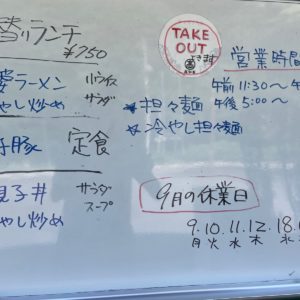 替りランチ
¥750
ラーメン
ハンライス
やし炒め
サラダ
豚 定食
子丼
サラダ
スープ
やし炒め
TAKE
OUT
できます
営業時間
午前 11:30〜
午後 5:00〜
担々麺
冷やし担々麺
9月の休業日
9.10.11.12.18.
月火水木 水